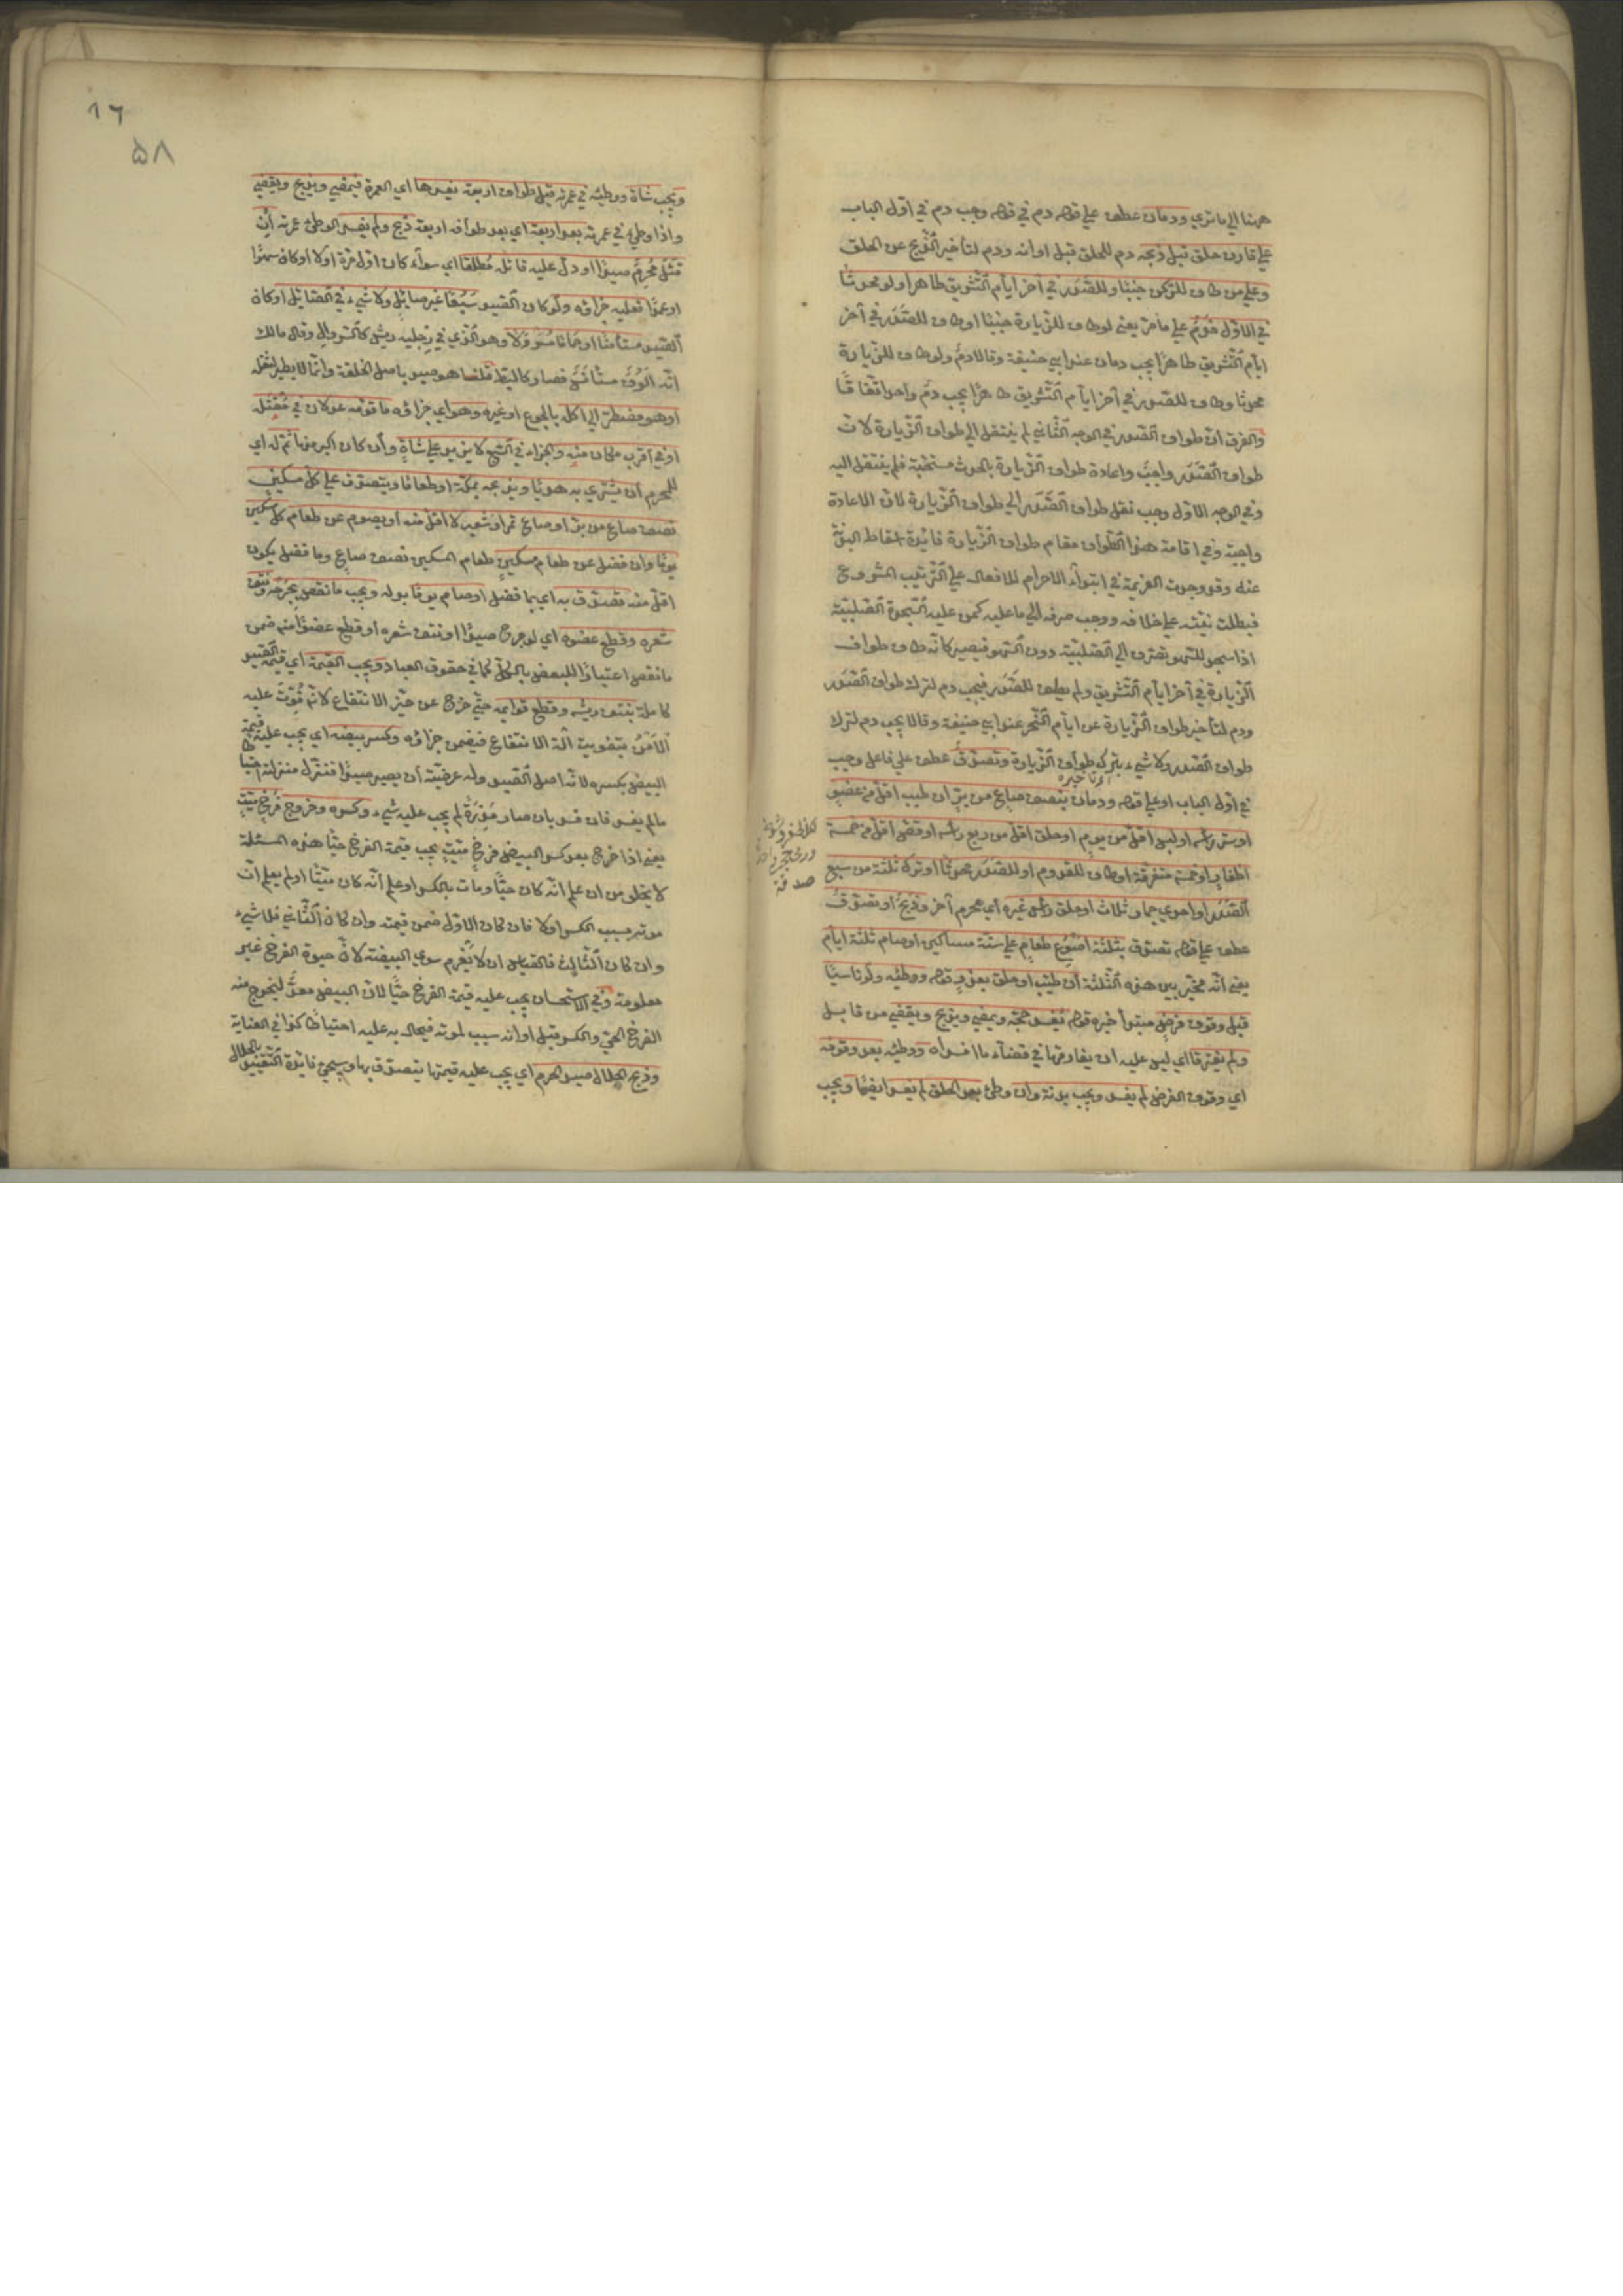 ههنا الي ما تري ودمان عطف علي قوله دم في قوله وجب دم في اول الباب
علي قارن حلق قبل ذبحه دم للحلق قبل اوانه ودم لتأخير الذّبح عن الحلق
وعلي من طاف للرّكن جنبا وللصّدر في آخر ايّام التّشريق طاهرا ولو محدثا
في الاوّل فدم علي ما مرّ يعني لو طاف للزّيارة جنبا وطاف للصّدر في آخر
ايّام التّشريق طاهرا يجب دمان عند ابي حنيفة وقالا دم ولو طاف للزّيارة
محدثا وطاف للصّدر في آخر ايّام التّشريق طاهرا يجب دم واحد اتّفاقا
والفرق ان طواف الصّدر في الوجه الثّاني لم ينتقل الي طواف الزّيارة لان
طواف الصّدر واجب واعادة طواف الزّيارة بالحدث مستحبّة فلم ينتقل اليه
وفي الوجه الاوّل وجب نقل طواف الصّدر الي طواف الزّيارة لان الاعادة
واجبة وفي اقامة هذا الطّواف مقام طواف الزّيارة فائدة اسقاط البدنة
عنه وقد وجدت العزيمة في ابتداء الاحرام للافعال علي التّرتيب المشروع
فبطلت نيّته علي خلافه ووجب صرفه الي ما عليه كمن عليه السّجدة الصّلبيّة
اذا سجد للسّهو تصرف الي الصّلبيّة دون السّهو فيصير كانّه طاف طواف
الزّيارة في آخر ايّام التّشريق ولم يطف للصّدر فيجب دم لترك طواف الصّدر
ودم لتأخير طواف الزّيارة عن ايّام النّحر عند ابي حنيفة وقالا يجب دم لترك
طواف الصّدر ولا شيء بتركه طواف الزّيارة وتصدّق عطف علي فاعل وجب
في اول الباب او علي قوله ودمان بنصف صاع من برّ ان طيّب اقلّ من عضو
او ستر رأسه او لبس اقلّ من يوم او حلق اقلّ من ربع رأسه او قصّ اقلّ من خمسة
اظفار او خمسة متفرقة او طاف للقدوم او للصّدر محدثا او ترك ثلثة من سبع
الصّدر او احدي جمار ثلاث او حلق رأس غيره اي محرم آخر وذبح او تصدّق
عطف علي قوله تصدّق بثلثة اصوع طعام علي ستّة مساكين او صام ثلثة ايّام
يعني انّه مخيّر بين هذه الثّلثة ان طيّب او حلق بعذر قوله ووطئه ولو ناسيا
قبل وقوف فرض مبتدأ خبره قوله يفسد حجّه ويمضي ويذبح ويقضي من قابل
ولم يفترقا اي ليس عليه ان يفارقها في قضاء ما افسداه ووطئه بعد وقوفه
اي وقوف الفرض لم يفسد ويجب بدنة وان وطئ بعد الحلق لم يفسد ايضا ويجب
صدقة
١٦
٥٨
ويجب شاة ووطئه في عمرته قبل طواف اربعة يفسدها اي العمرة فيمضي ويذبح ويقضي
واذا وطئ في عمرته بعد اربعة اي بعد طوافه اربعة ذبح ولم يفسد الوطئ عمرته ان
قتل محرم صيدا او دلّ عليه قاتله مطلقا اي سواء كان اول مرّة او لا او كان سهوا
او عمدا فعليه جزاؤه ولو كان الصّيد سبعا غير صائل ولا شيء في الصّائل او كان
الصّيد مستأنسا او حماما مسرولا وهو الّذي في رجليه ريش كالسّروال وقال مالك
انّه الوف مستأنس فصار كالبط قلنا هو صيد باصل الخلقة وانّما لا يطير لثقله
او هو مضطرّ الي اكله بالجوع او غيره وهو اي جزاؤه ما قوّمه عدلان في مقتله
او في اقرب مكان منه والجزاء في السّبع لا يزيد علي شاة وان كان اكبر منها ثم له اي
للمحرم ان يشتري به هديا ويذبحه بمكّة او طعاما ويتصدّق علي كلّ مسكين
نصف صاع من برّ او صاع تمر او شعير لا اقلّ منه او يصوم عن طعام كلّ مسكين
يوما وان فضل عن طعام مسكين طعام المسكين نصف صاع وما فضل يكون
اقلّ منه تصدّق به اي بما فضل او صام يوما بدله ويجب ما نقص بجرحه ونتف
شعره وقطع عضوه اي لو جرح صيدا او نتف شعره او قطع عضوا منه ضمن
ما نقص اعتبارا للبعض بالكلّ كما في حقوق العباد ويجب القيمة اي قيمة الصّيد
كاملة بنتف ريشه وقطع قوايمه حتّي خرج عن حيّز الانتفاع لانّه فوّت عليه
الامن بتفويت آلة الانتفاع فيضمن جزاؤه وكسر بيضه اي يجب عليه قيمة
البيض بكسره لانّه اصل الصّيد وله عرضيّة ان يصير صيدا فنزّل منزلته احتياطا
ما لم يفسد فان فسد بان صار مذرة لم يجب عليه شيء وكسره وخروج فرخ ميّت
يعني اذا خرج بعد كسر البيض فرخ ميّت يجب قيمة الفرخ حيّا هذه المسئلة
لا يخلو من ان علم انّه كان حيّا ومات بالكسر او علم انّه كان ميّتا او لم يعلم ان
موته بسبب الكسر او لا فان كان الاوّل ضمن قيمته وان كان الثّاني فلا شيء
وان كان الثّالث فالقياس ان لا يغرم سوي البيضة لانّ حيوة الفرخ غير
معلومة وفي الاستحسان يجب عليه قيمة الفرخ حيّا لان البيض معدّ ليخرج منه
الفرخ الحيّ والكسر قبل اوانه سبب لموته فيحال به عليه احتياطا كذا في العناية
وذبح الحلال صيد الحرم اي يجب عليه قيمتها يتصدّق بها وسيجئ فائدة التّقييد بالحلال